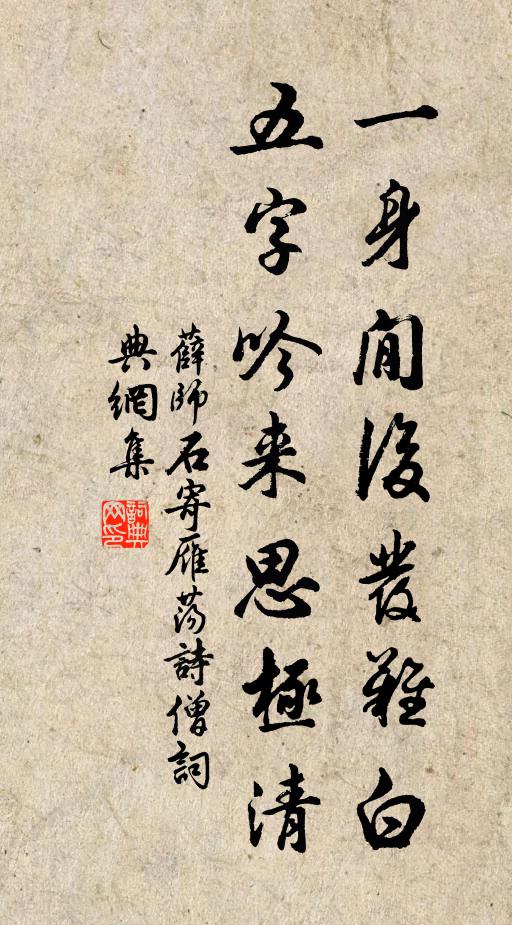 一身閒後發難白
五字吟来思極清
薛師石寄雁蕩詩僧詞
典網集
詞典網印